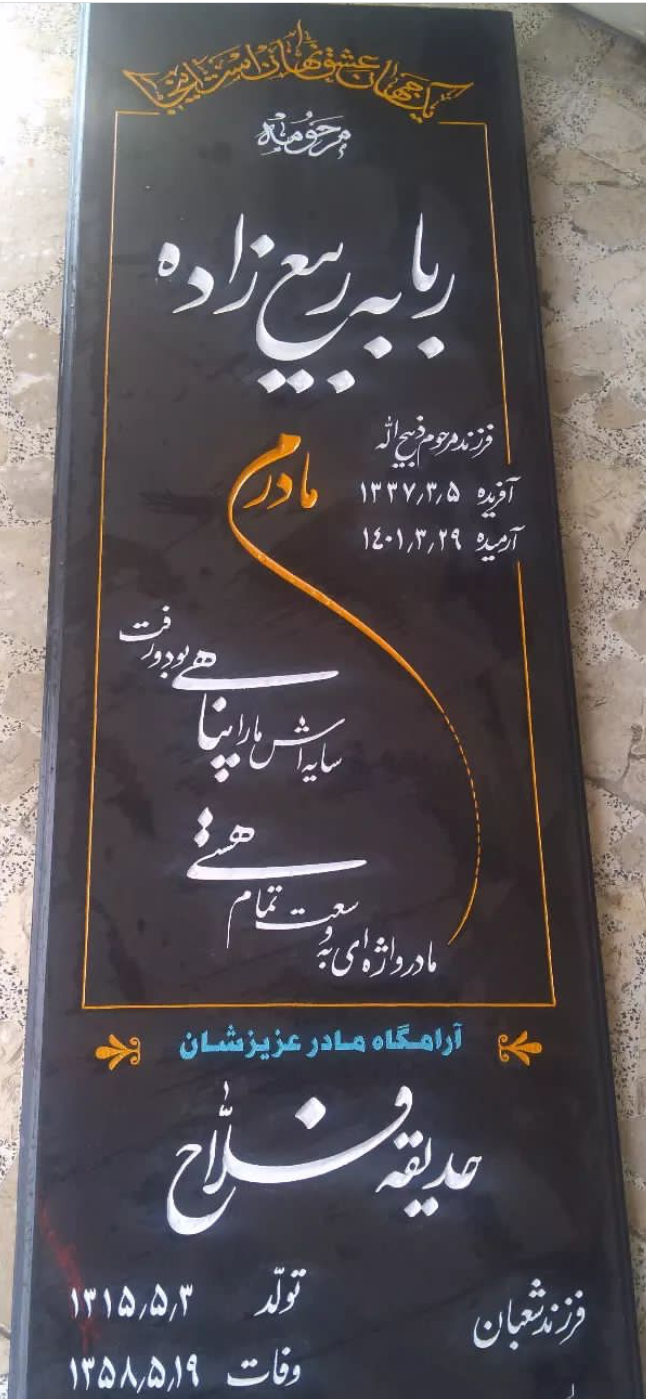 یک جهان عشق نهان است اینجا
مرحومه
ربابه ربیع زاده
فرزند مرحوم ذبیح اله
آفریده ۱۳۳۷/۳/۵
آرمیده ۱۴۰۱/۳/۲۹
مادرم
سایه اش ما را پناهی بود و رفت
مادر واژه ای به وسعت تمام هستی
آرامگاه مادر عزیزشان
حدیقه فلاح
فرزند شعبان
تولّد ۱۳۱۵/۵/۳
وفات ۱۳۵۸/۵/۱۹